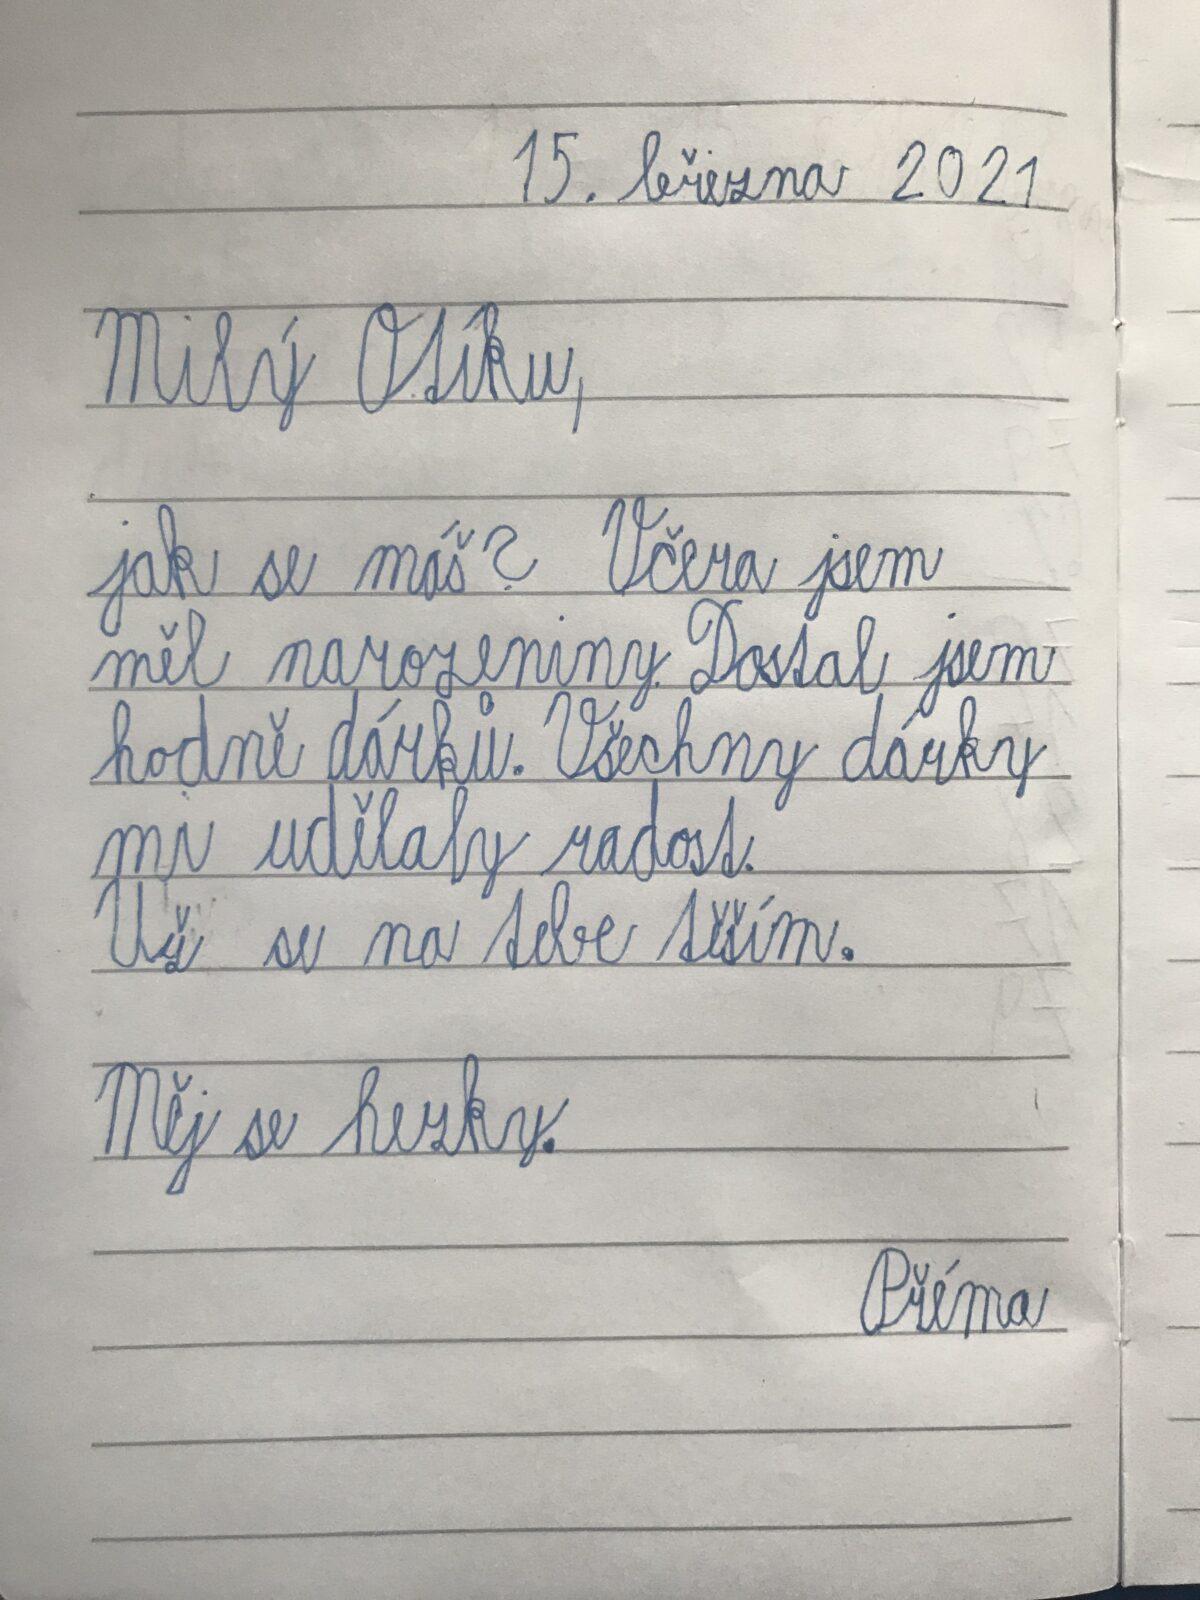 15. března 2021
Milý Otíku,
jak se máš? Včera jsem
měl narozeniny. Dostal jsem
hodně dárků. Všechny dárky
mi udělaly radost.
Už se na tebe těším.
Měj se hezky.
Přéma